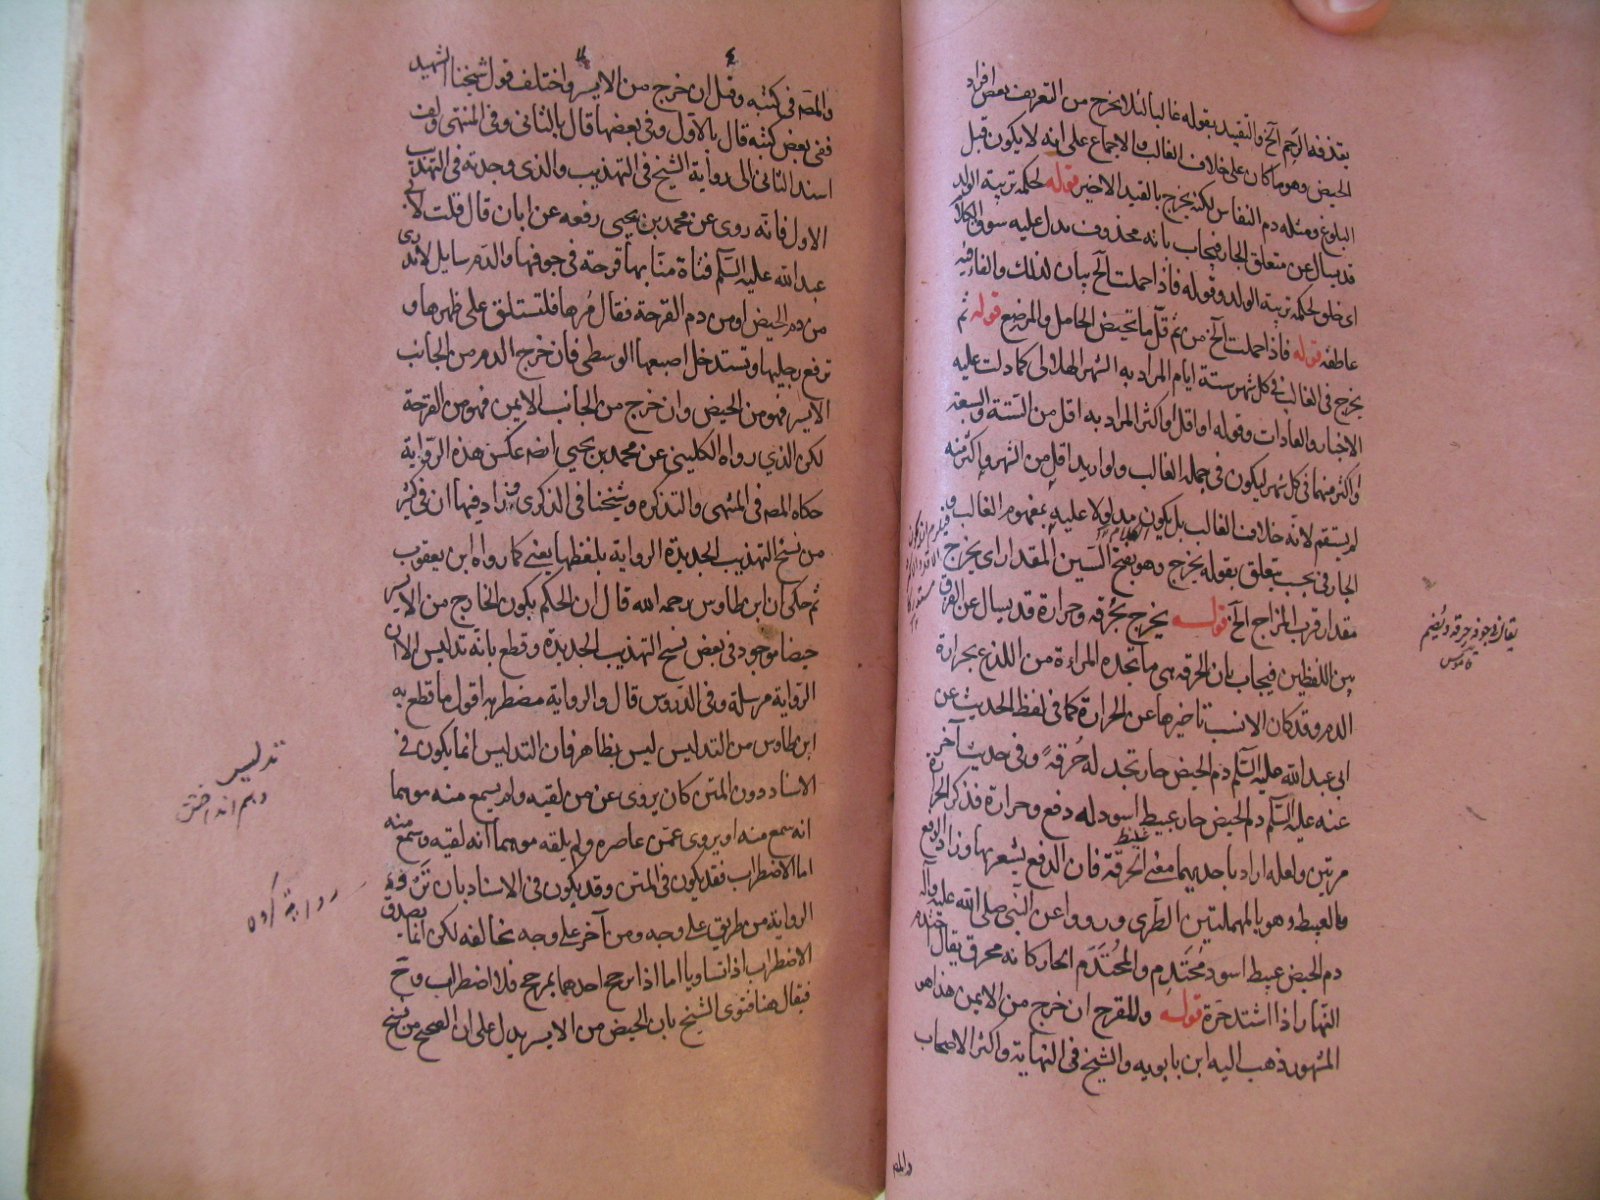 يقذفه الرحم الخ والتقييد بقوله غالبا لئلا يخرج من التعريف بعض افراد
الحيض وهو ما كان على خلاف الغالب والاجماع على انه لا يكون قبل
البلوغ ومثله دم النفاس لكنه يخرج بالقيد الاخير قوله لحكمة تربية الولد
قد يسال عن متعلق الجار فيجاب بانه محذوف يدل عليه سوق الكلام
اى خلق لحكمة تربية الولد وقوله فاذا حملت الخ بيان لذلك والفاء فيه
عاطفة قوله فاذا حملت الخ من ثم قل ما تحيض الحامل والمرضع قوله ثم
يخرج في الغالب في كل شهر ستة ايام المراد به الشهر الهلالى كما دلت عليه
الاخبار والعادات وقوله او اقل او اكثر المراد به اقل من الستة والسبعة
او اكثر منهما في كل شهر ليكون في جملة الغالب ولو اريد اقل من الشهر واكثر منه
لم يستقم لانه خلاف الغالب بل يكون مدلولا عليه بمفهوم الغالب و
الجار في بحسب يتعلق بقوله يخرج وهو بفتح السين المقدار اى يخرج
مقدار قرب المزاج الخ قوله يخرج بحرقة وحرارة قد يسال عن الفرق
بين اللفظين فيجاب بان الحرقة هي ما تجده المراءة من اللذع بحرارة
الدم وقد كان الانسب تاخيرها عن الحرارة كما في لفظ الحديث عن
ابى عبد الله عليه السلم دم الحيض حار تجد له حُرقةً وفى حديث آخر
عنه عليه السلم دم الحيض حار عبيط اسود له دفع وحرارة فذكر الحرارة
مرتين ولعله اراد باحديهما معنى الحرقة فان الدفع يشعر بها وزاد الدفع
والعبيط وهو بالمهملتين الطرى ورووا عن النبى صلى الله عليه وآله
دم الحيض عبيط اسود مُحْتَدِم والمُحْتَدِم الحار كانه محرق يقال احتدم
النهار اذا اشتد حَرّه قوله وللقرح ان خرج من الايمن هذا هو
المشهور ذهب اليه ابن بابويه والشيخ في النهاية واكثر الاصحاب
والمص
يقال في جوفه حرقة ويُضم
قاموس
والمصه في كتبه وقيل ان خرج من الايسر واختلف قول شيخنا الشهيد
ففى بعض كتبه قال بالاول وفى بعضها قال بالثانى وفى المنتهى
اسند الثانى الى رواية الشيخ في التهذيب والذى وجدته في التهذيب
الاول فانه روى عن محمد بن يحيى رفعه عن ابان قال قلت لابى
عبد الله عليه السلم فتاة منا بها قرحة في جوفها والدم سايل لا تدرى
من دم الحيض او من دم القرحة فقال مُرها فلتستلق على ظهرها و
ترفع رجليها وتستدخل اصبعها الوسطى فان خرج الدم من الجانب
الايسر فهو من الحيض وان خرج من الجانب الايمن فهو من القرحة
لكن الذي رواه الكلينى عن محمد بن يحيى ايضه عكس هذه الرواية
حكاه المصه في المنتهى والتذكرة وشيخنا في الذكرى وزاد فيها ان في كثير
من نسخ التهذيب الجديدة الرواية بلفظها يعنى كما رواه ابن يعقوب
ثم حكى ان ابن طاوس رحمه الله قال ان الحكم بكون الخارج من الايسر
حيضا موجود في بعض نسخ التهذيب الجديدة وقطع بانه تدليس الا ان
الرواية مرسلة وفى الدروس قال والرواية مضطربة اقول ما قطع به
ابن طاوس من التدليس ليس بظاهر فان التدليس انما يكون في
الاسناد دون المتن كان يروى عن من لقيه ولم يسمع منه موهما
انه سمع منه او يروى عمن عاصره ولم يلقه موهما انه لقيه وسمع منه
اما الاضطراب فقد يكون في المتن وقد يكون في الاسناد بان
الرواية من طريق على وجه ومن آخر على وجه يخالفه لكن انما يصدق
الاضطراب اذا تساويا اما اذا رجح احدهما بمرجح فلا اضطراب وح
فيقال هنا فتوى الشيخ بان الحيض من الايسر يدل على ان الصحيح من نسخ
تدليس